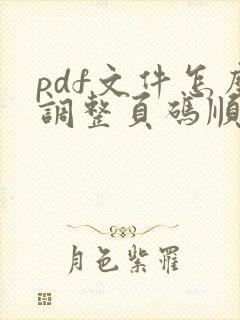 pdf文件怎麼
調整頁碼順
月色紫羅